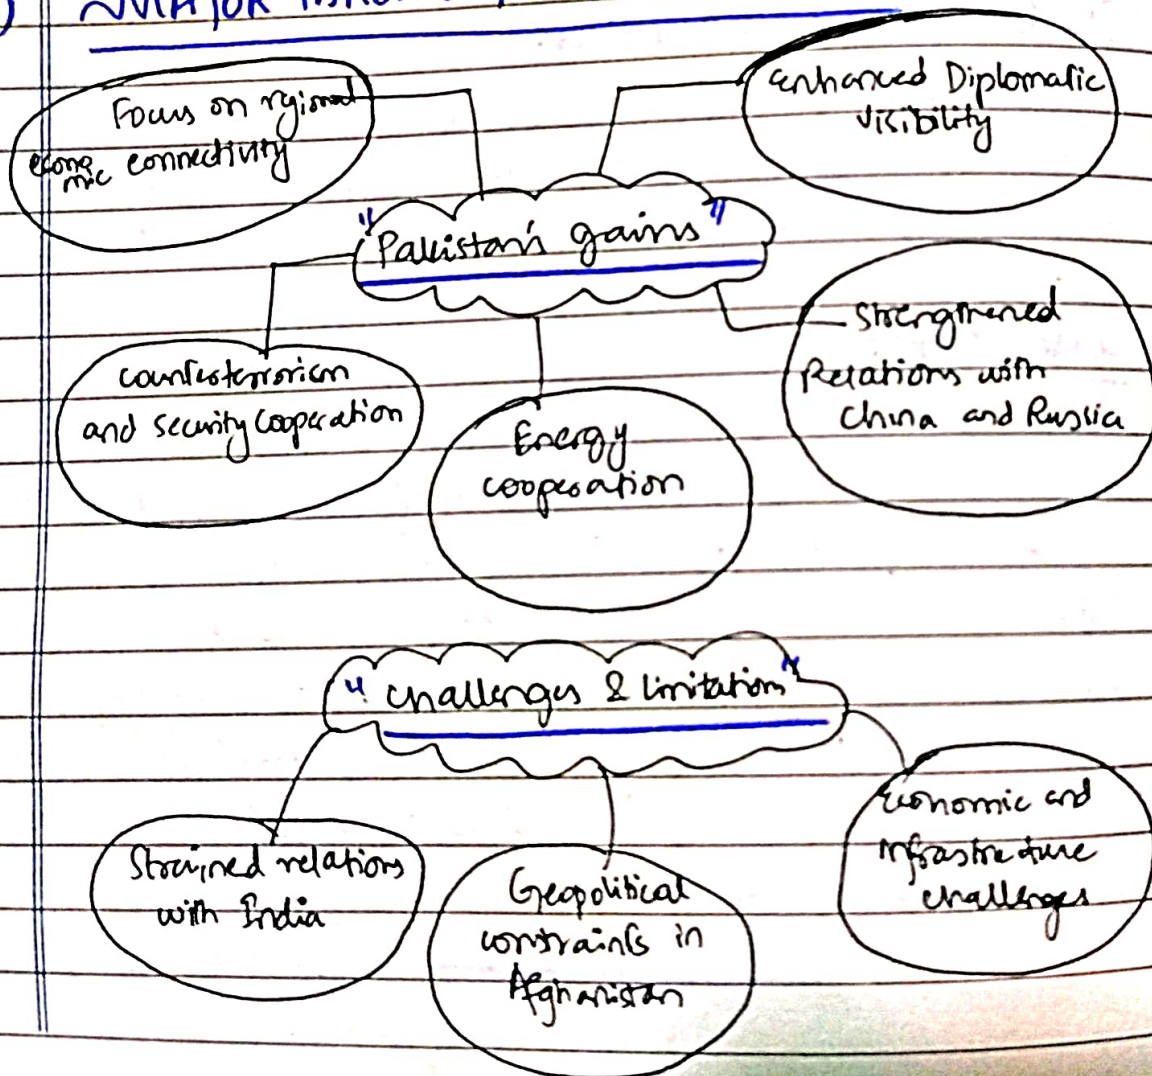 Focus on regional
economic connectivity
Enhanced Diplomatic
Visibility
"Pakistan's gains"
Counterterrorism
and Security Cooperation
Energy
cooperation
Strengthened
Relations with
China and Russia
"Challenges & limitations"
Strained relations
with India
Geopolitical
constraints in
Afghanistan
Economic and
infrastructure
challenges